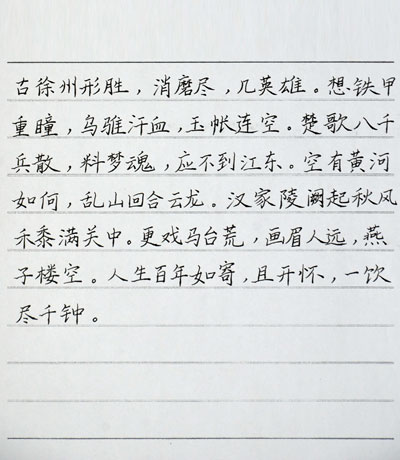 古徐州形胜，消磨尽，几英雄。想铁甲
重瞳，乌骓汗血，玉帐连空。楚歌八千
兵散，料梦魂，应不到江东。空有黄河
如何，乱山回合云龙。汉家陵阙起秋风
禾黍满关中。更戏马台荒，画眉人远，燕
子楼空。人生百年如寄，且开怀，一饮
尽千钟。